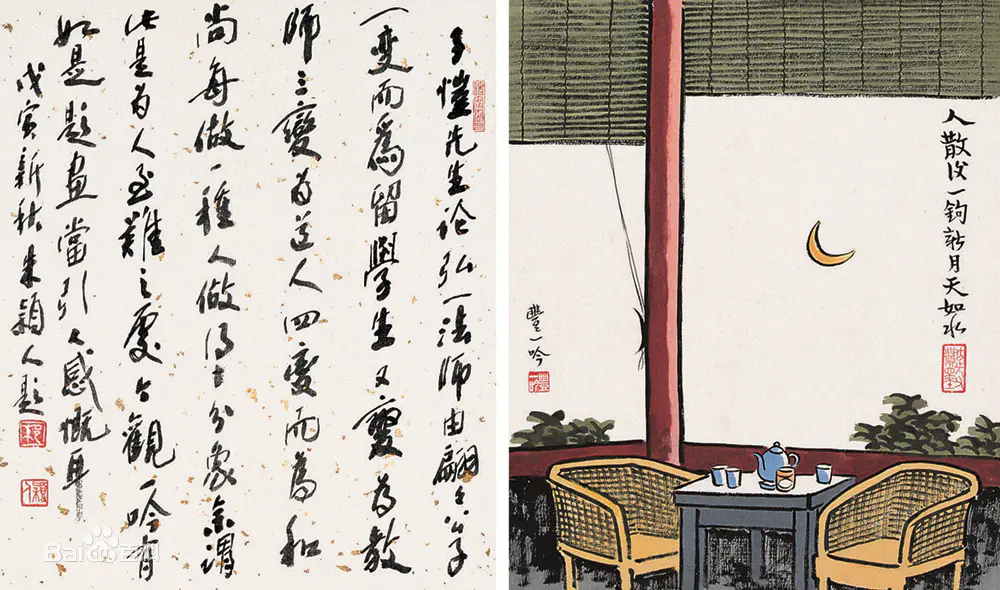 子愷先生论弘一法师由翩々公子
一变而為留學生又變为教
师三變为道人四变而為和
尚每做一種人做得十分象余谓
此是为人至難之处今觀一吟有
如是题画當引人感慨耳
戊寅新秋朱颖人题
人散后一钩新月天如水
豐一吟
Baidu百科